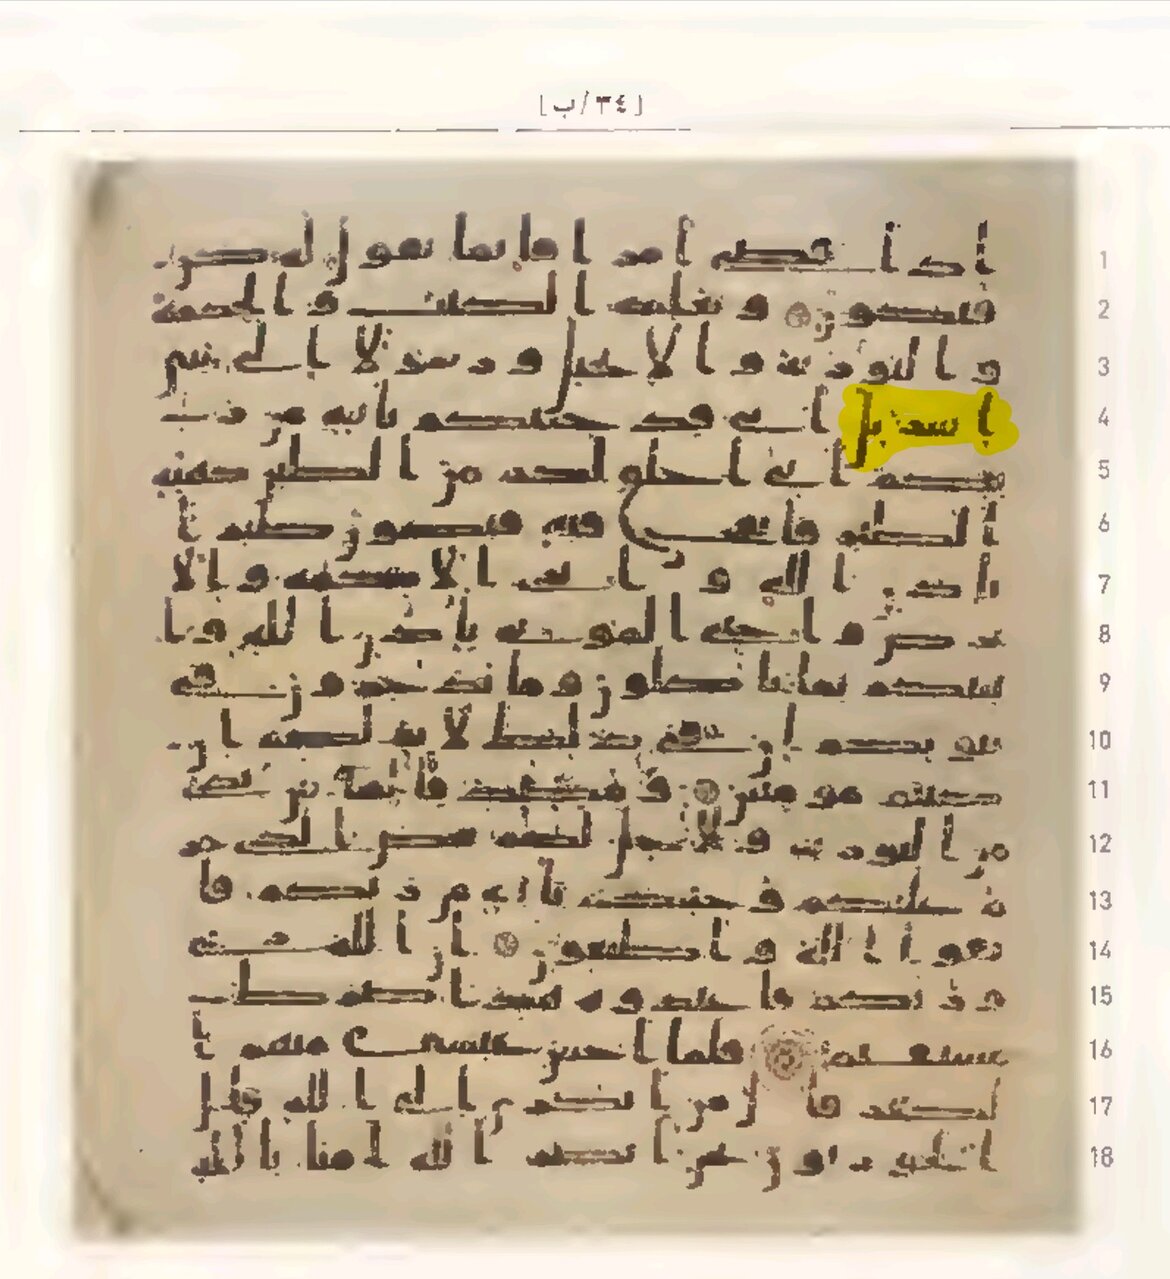 [٣٤/ب]
1 اذا قضى امرا فانما يقول له كن
2 فيكون و يعلمه الكتب و الحكمة
3 و التورية و الانجيل و رسولا الى بني
4 اسريل اني قد جئتكم باية من ر
5 بكم اني اخلق لكم من الطين كهية
6 الطير فانفخ فيه فيكون طيرا با
7 ذن الله و ابرئ الاكمه و الا
8 برص و احي الموتى باذن الله و ا
9 نبيكم بما تاكلون و ما تدخرون في
10 بيوتكم ان في ذلك لاية لكم ان
11 كنتم مومنين و مصدقا لما بين يدي
12 من التورية و لاحل لكم بعض الذي حر
13 م عليكم و جئتكم باية من ربكم فا
14 تقوا الله و اطيعون ان الله
15 ربي و ربكم فاعبدوه هذا صرط
16 مستقيم فلما احس عيسى منهم ا
17 لكفر قال من انصاري الى الله قال
18 الحواريون نحن انصار الله امنا بالله